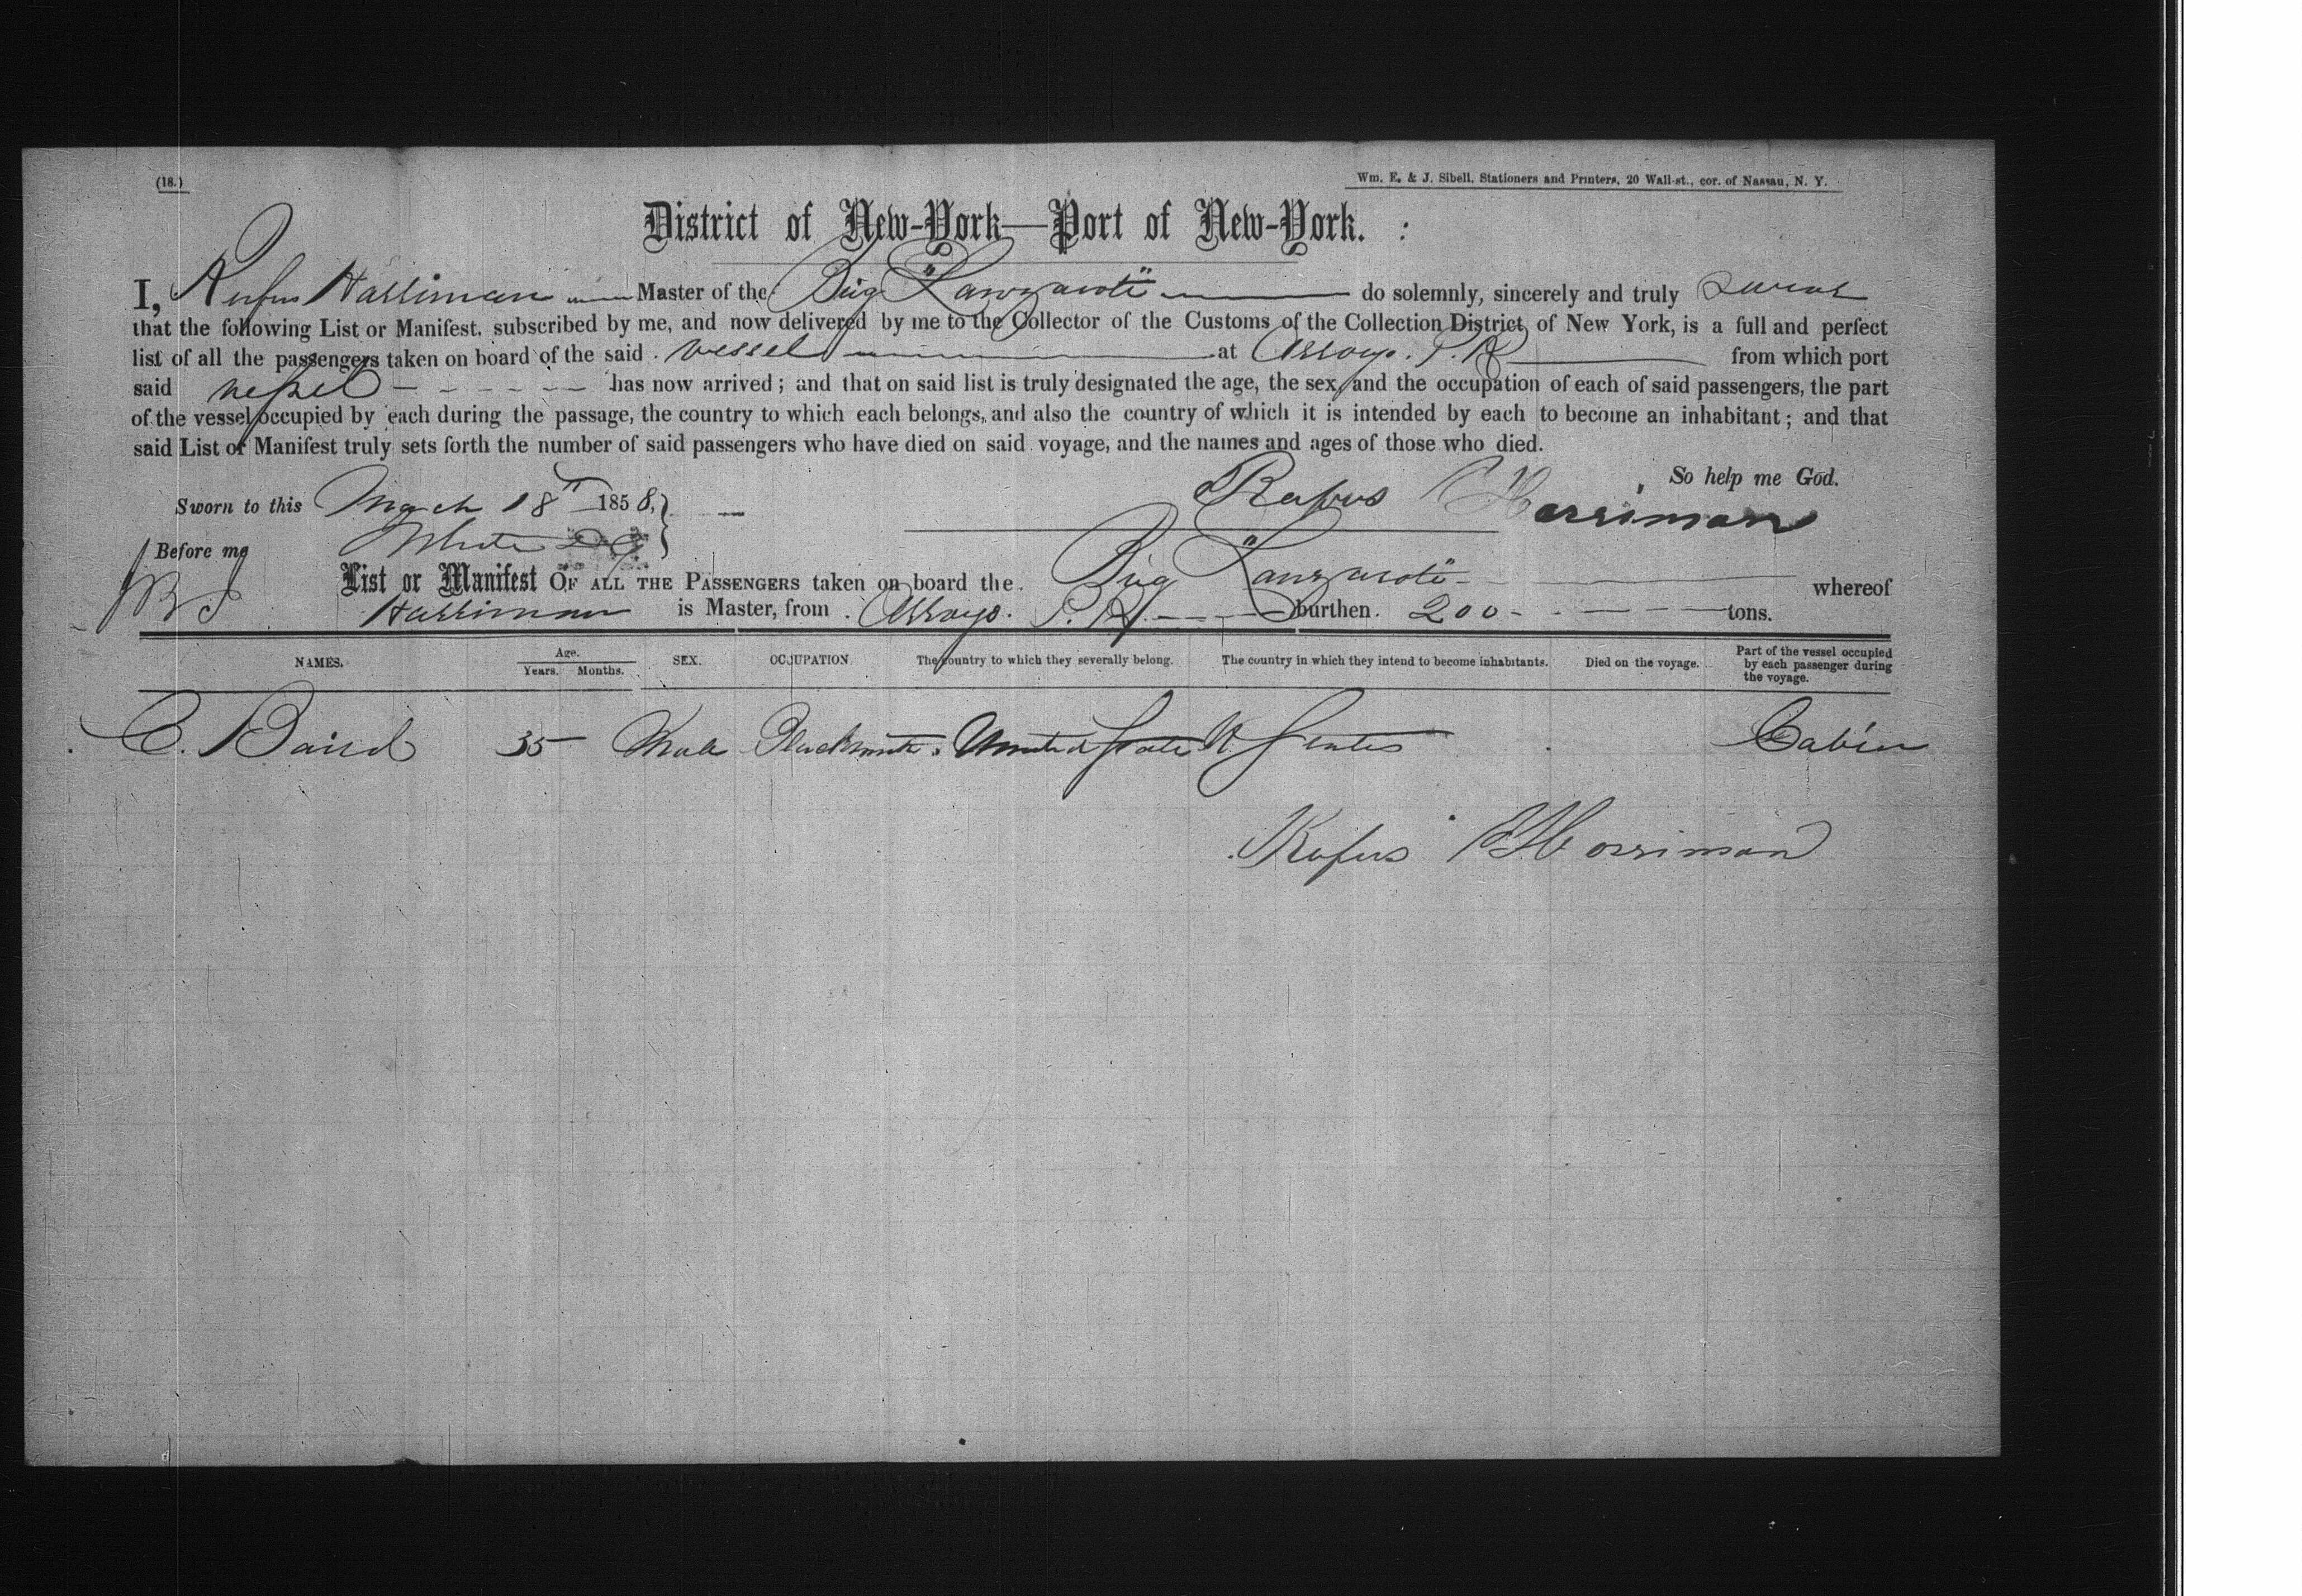 (18.)
Wm. E. & J. Sibell, Stationers and Printers, 20 Wall-st., cor. of Nassau, N. Y.
District of New-York—Port of New-York.
I, Rufus Harriman Master of the Brig "Lanzarote" do solemnly, sincerely and truly swear
that the following List or Manifest, subscribed by me, and now delivered by me to the Collector of the Customs of the Collection District of New York, is a full and perfect
list of all the passengers taken on board of the said vessel at Arroyo. P. R from which port
said vessel has now arrived; and that on said list is truly designated the age, the sex, and the occupation of each of said passengers, the part
of the vessel occupied by each during the passage, the country to which each belongs, and also the country of which it is intended by each to become an inhabitant; and that
said List or Manifest truly sets forth the number of said passengers who have died on said voyage, and the names and ages of those who died.
So help me God.
Sworn to this March 18th 1858, Rufus Harriman
Before me
List or Manifest OF ALL THE PASSENGERS taken on board the Brig "Lanzarote" whereof
Harriman is Master, from Arroyo. P. R. burthen 200 tons.
NAMES. Age. Years. Months. SEX. OCCUPATION The country to which they severally belong. The country in which they intend to become inhabitants. Died on the voyage. Part of the vessel occupied by each passenger during the voyage.
C. Baird 35 Male Blacksmith United State U States Cabin
Rufus Harriman